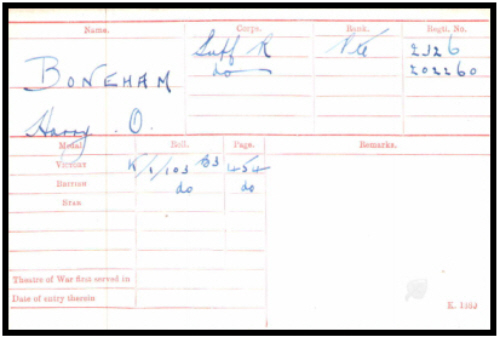 Name. Corps. Rank. Regtl. No.
BONEHAM Suff R Pte 2326
do 202260
Harry . O.
Medal. Roll. Page. Remarks.
Victory K/1/103 B3 454
British do do
Star
Theatre of War first served in
Date of entry therein
K. 1380